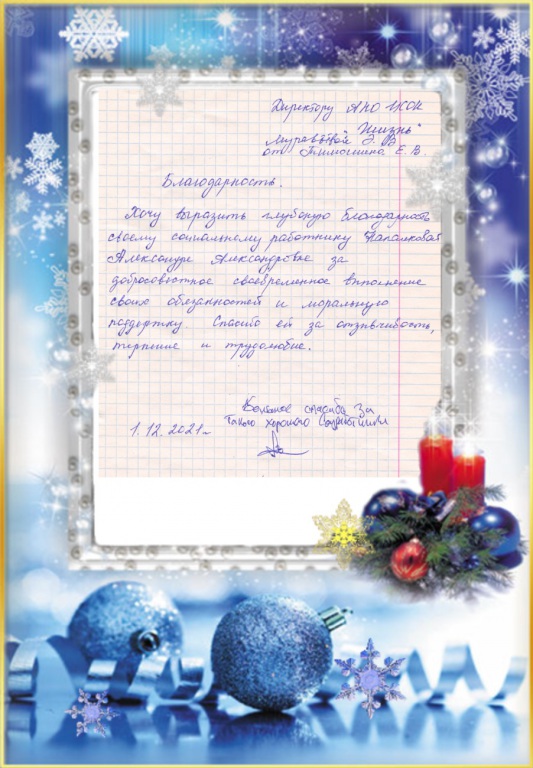 Директору АНО ЦСОН
"Жизнь"
Муравьёвой Э. В
от Тимошина Е. В.
Благодарность.
Хочу выразить глубокую благодарность
своему социальному работнику
Александре Александровне за
добросовестное своевременное выполнение
своих обязанностей и моральную
поддержку Спасибо ей за отзывчивость,
терпение и трудолюбие.
Большое спасибо за
такого хорошего
1.12.2021г